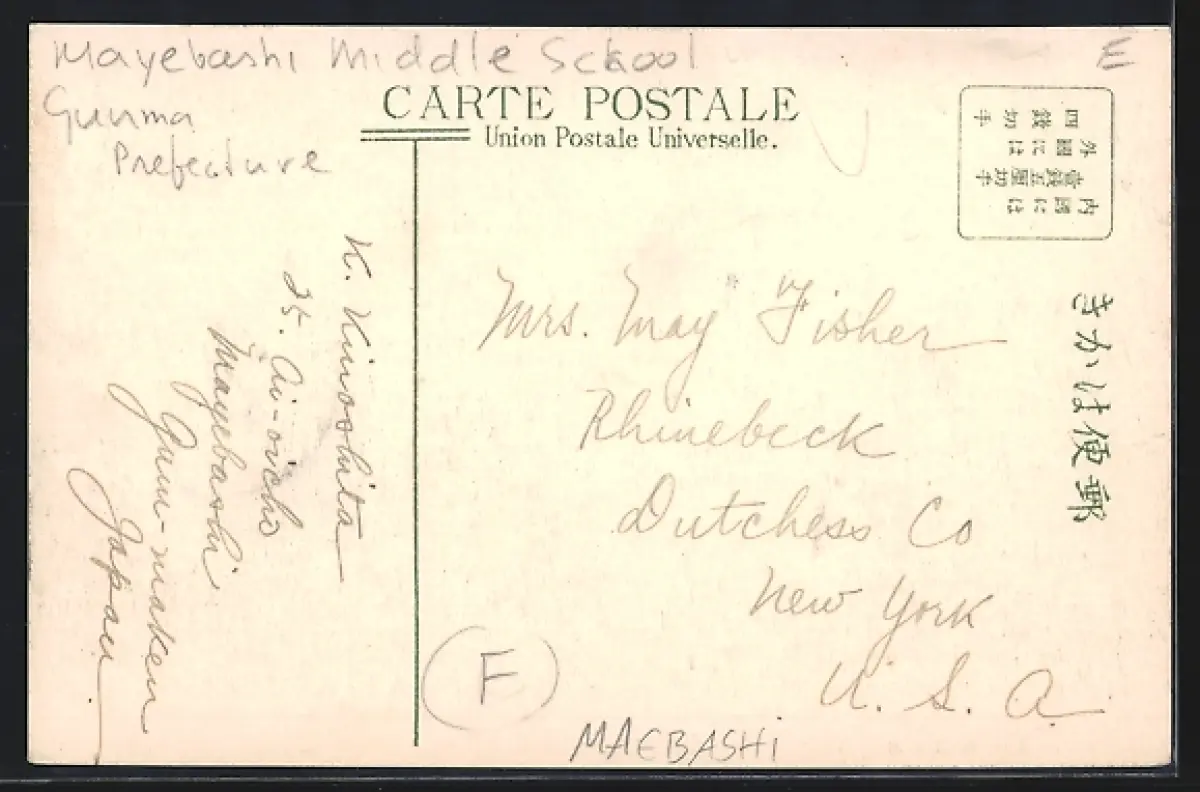 Mayebashi Middle School
Gunma
Prefecture
E
CARTE POSTALE
Union Postale Universelle.
内國には
壹錢五厘切手
外國には
四錢切手
郵便はかき
K. Kinoshita
25. Ai-oicho
Mayebashi
Gum-maken
Japan
Mrs. May Fisher
Rhinebeck
Dutchess Co
New York
U. S. A.
F
MAEBASHi